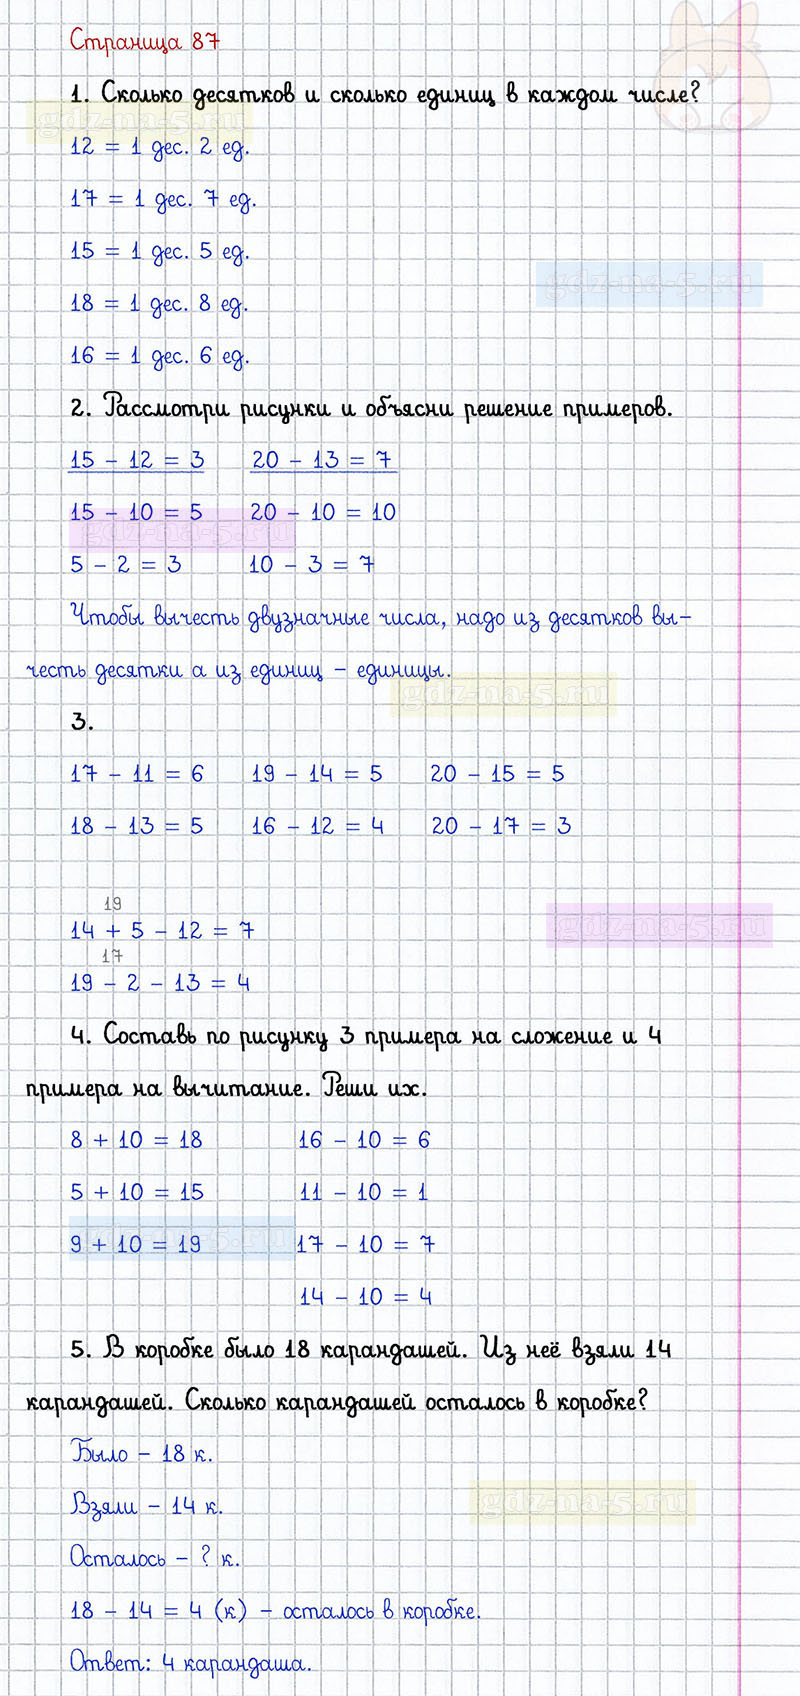 Страница 87
1. Сколько десятков и сколько единиц в каждом числе?
gdz-na-5.ru
12 = 1 дес. 2 ед.
17 = 1 дес. 7 ед.
15 = 1 дес. 5 ед.
gdz-na-5.ru
18 = 1 дес. 8 ед.
16 = 1 дес. 6 ед.
2. Рассмотри рисунки и объясни решение примеров.
15 - 12 = 3 20 - 13 = 7
15 - 10 = 5 20 - 10 = 10
gdz-na-5.ru
5 - 2 = 3 10 - 3 = 7
Чтобы вычесть двузначные числа, надо из десятков вы-
честь десятки а из единиц - единицы.
gdz-na-5.ru
3.
17 - 11 = 6 19 - 14 = 5 20 - 15 = 5
18 - 13 = 5 16 - 12 = 4 20 - 17 = 3
19
14 + 5 - 12 = 7
gdz-na-5.ru
17
19 - 2 - 13 = 4
4. Составь по рисунку 3 примера на сложение и 4
примера на вычитание. Реши их.
8 + 10 = 18 16 - 10 = 6
5 + 10 = 15 11 - 10 = 1
gdz-na-5.ru
9 + 10 = 19 17 - 10 = 7
14 - 10 = 4
5. В коробке было 18 карандашей. Из неё взяли 14
карандашей. Сколько карандашей осталось в коробке?
Было - 18 к.
Взяли - 14 к.
gdz-na-5.ru
Осталось - ? к.
18 - 14 = 4 (к) - осталось в коробке.
Ответ: 4 карандаша.